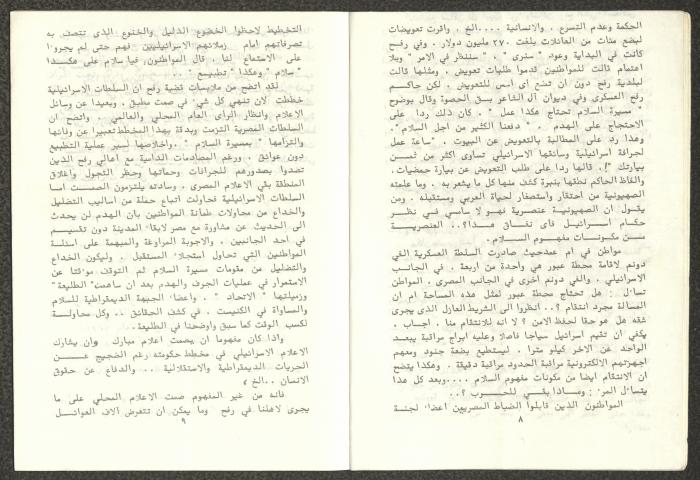 الحكمة وعدم التسرع . والانسانية ....الخ . واثرت تعويضات
لبضع مئات من العائلات بلغت ٢٧٠ مليون دولار . وفي رفح
كانت في البداية وعود " سنرى " ، " سننظر في الامر " وبلا
اهتمام ثالث للمواطنين قدموا طلبات تعويض . ومثلها قالت
لبلدية رفح دون ان تضع اى اسس للتعويض . لكن حاكم
رفح العسكرى وفي ديوان آل الشاعر بسق الحصوة وقال بوضوح
" مسيرة السلام تحتاج هكذا عمل " . كان ذلك ردا على
الاحتجاج على الهدم . " دفعنا الكثير من اجل السلام".
وهذا رد على المطالبة بالتعويض عن البيوت . "ساعة عمل
لجرافة اسرائيلية وسائقها الاسرائيلي تساوى اكثر من ثمن
بيارتك "! . قالها ردا على طلب التعويض عن بيارة حمضيات .
والفاظ الحاكم نطقها بنبرة كشف منها كل ما يشعر به . وما علمته
الصهيونية من احتقار واستصغار لحياة العربي ومستقبله . ومن
يقول ان الصهيونية عنصرية فهو لا سامي في نظر
حكام اسرائيل فاى نفاق هذا؟.. العنصرية
من مكونات مفهوم السلام .
مواطن في ام عمد حيث صادرت السلطة العسكرية الفي
دونم لاقامة محطة عبور هي واحدة من اربعة . في الجانب
الاسرائيلي . والفي دونم اخرى في الجانب المصرى . المواطن
تساءل : هل تحتاج محطة عبور لمثل هذه المساحة ام ان
المسالة مجرد انتقام ؟.. انظروا الى الشريط العازل الذى يجرى
شقه هل هو حقا لحفظ الامن ؟ لا انه للانتقام منا . اجاب .
يكفي ان تقيم اسرائيل سياجا فاصلا وعليه ابراج مراقبة يبعد
الواحد عن الاخر كيلو مترا . ليستطيع بضعة جنود ومعهم
اجهزتهم الالكترونية مراقبة الحدود مراقبة دقيقة . وهكذا يتضح
ان الانتقام ايضا من مكونات مفهوم السلام ....وبعد كل هذا
يتساءل المرء : وماذا بقي للحرب ؟..
المواطنون الذين قابلوا الضباط المصريين اعضاء لجنة
٨
التخطيط لاحظوا الخضوع الذليل والخنوع الذى تتصف به
تصرفاتهم امام زملائهم الاسرائيليين فهم حتى لم يجروءا
على الاستماع لنا . قال المواطنون، فيا سلام على هكذا
" سلام " وهكذا " تطبيع " ..
لقد اتضح من ملابسات قضية رفح ان السلطات الاسرائيلية
خططت لان تنهي كل شيء في صمت مطبق . وبعيدا عن وسائل
الاعلام وانظار الرأى العام المحلي والعالمي . واتضح ان
السلطات المصرية التزمت وبدقة بهذا المخطط تعبيرا عن وفائها
والتزامها " بمسيرة السلام " .واخلاصها لسير عملية التطبيع
دون عوائق . ورغم المصادمات الدامية مع اهالي رفح الذين
تصدوا بصدورهم للجرافات وحماتها وحظر التجول واغلاق
المنطقة بقي الاعلام المصرى . وسادته يلتزمون الصمت اما
السلطات الاسرائيلية فحاولت اتباع حملة من اساليب التضليل
والخداع من محاولات طمأنة المواطنين بان الهدم لن يحدث
الى الحديث عن مشاورة مع مصر لابقاء المدينة دون تقسيم
في احد الجانبين . والاجوبة المراوغة والمبهمة على اسئلة
المواطنين التي تحاول استجلاء المستقبل . وليكون الخداع
والتضليل من مقومات مسيرة السلام تم التوقف موءقتا عن
الاستمرار في عمليات الجرف والهدم بعد ان ساهمت "الطليعة"
وزميلتها " الاتحاد " . واعضاء الجبهة الديمقراطية للسلام
والمساواة في الكنيست . في كشف الحقائق .. وكل محاولة
لكسب الوقت كما سبق واوضحنا في الطليعة .
واذا كان مفهوما ان يصمت اعلام مبارك وان يشارك
الاعلام الاسرائيلي في مخطط حكومته رغم الضجيج عن
الحريات الديمقراطية والاستقلالية .. والدفاع عن حقوق
الانسان ..الخ ،
فانه من غير المفهوم صمت الاعلام المحلي على ما
يجرى لاهلنا في رفح وما يمكن ان تتعرض آلاف العوائل
٩